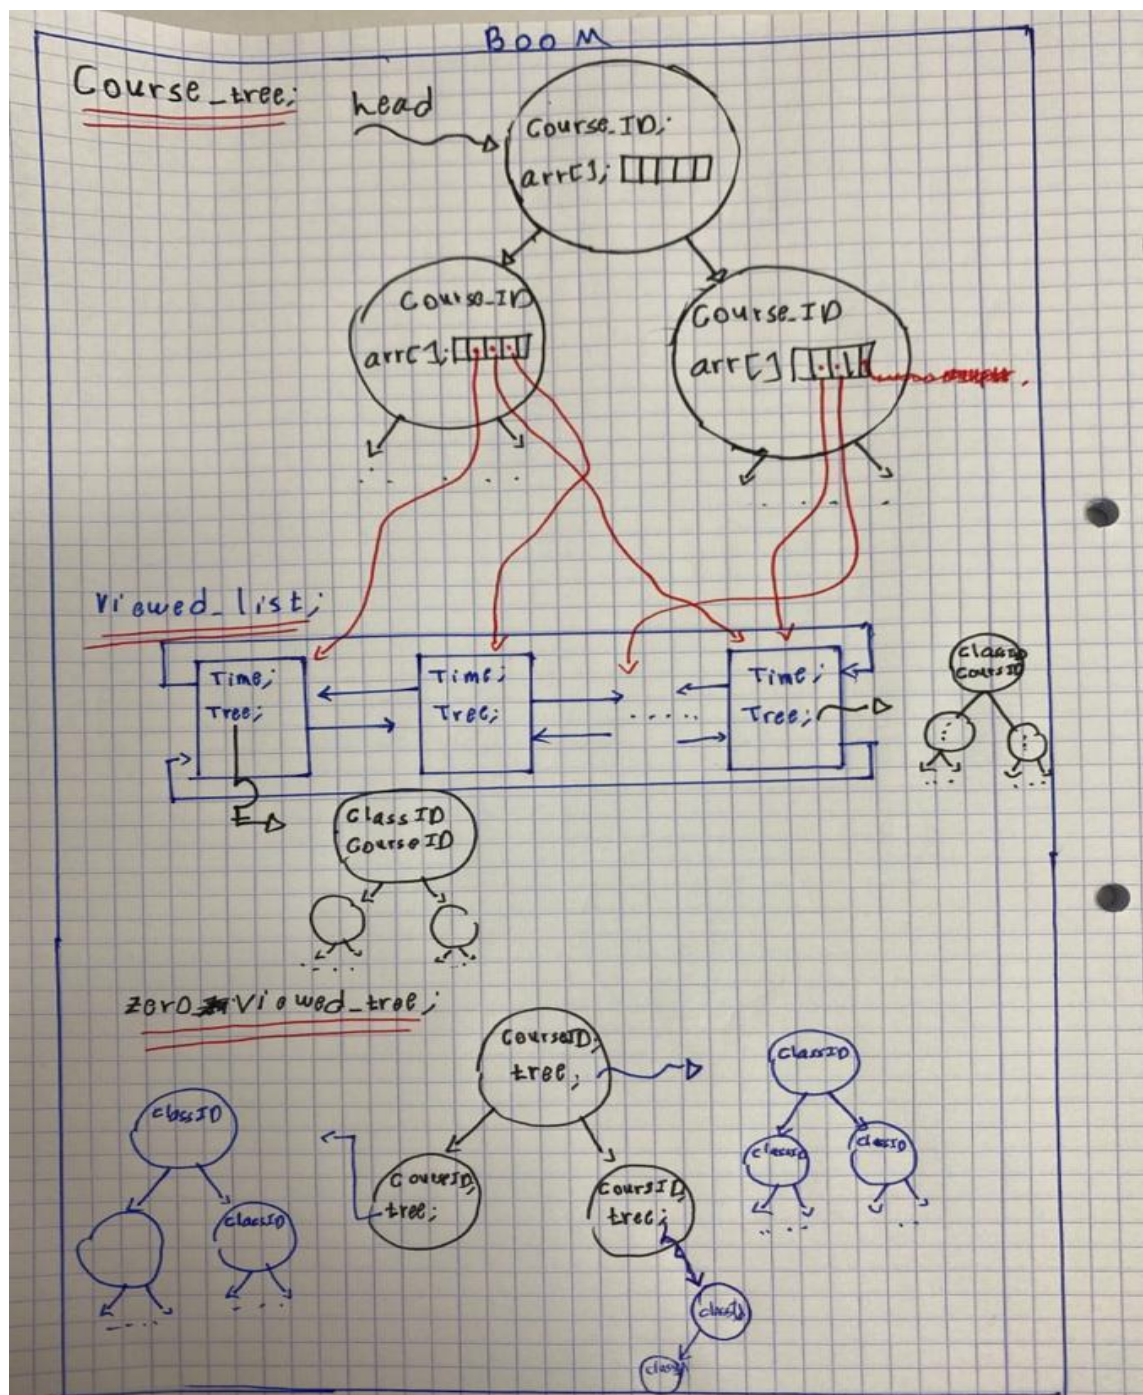 BOOM
Course_tree;
head
Course_ID;
arr[];
Course_ID
arr[];
Course_ID
arr[]
Viewed_list;
Time;
Tree;
Time;
Tree;
Time;
Tree;
ClassID
CoursID
ClassID
CourseID
zero_Viewed_tree;
CourseID;
tree;
ClassID
ClassID
ClassID
ClassID
ClassID
CourseID;
tree;
CoursID;
tree;
ClassID